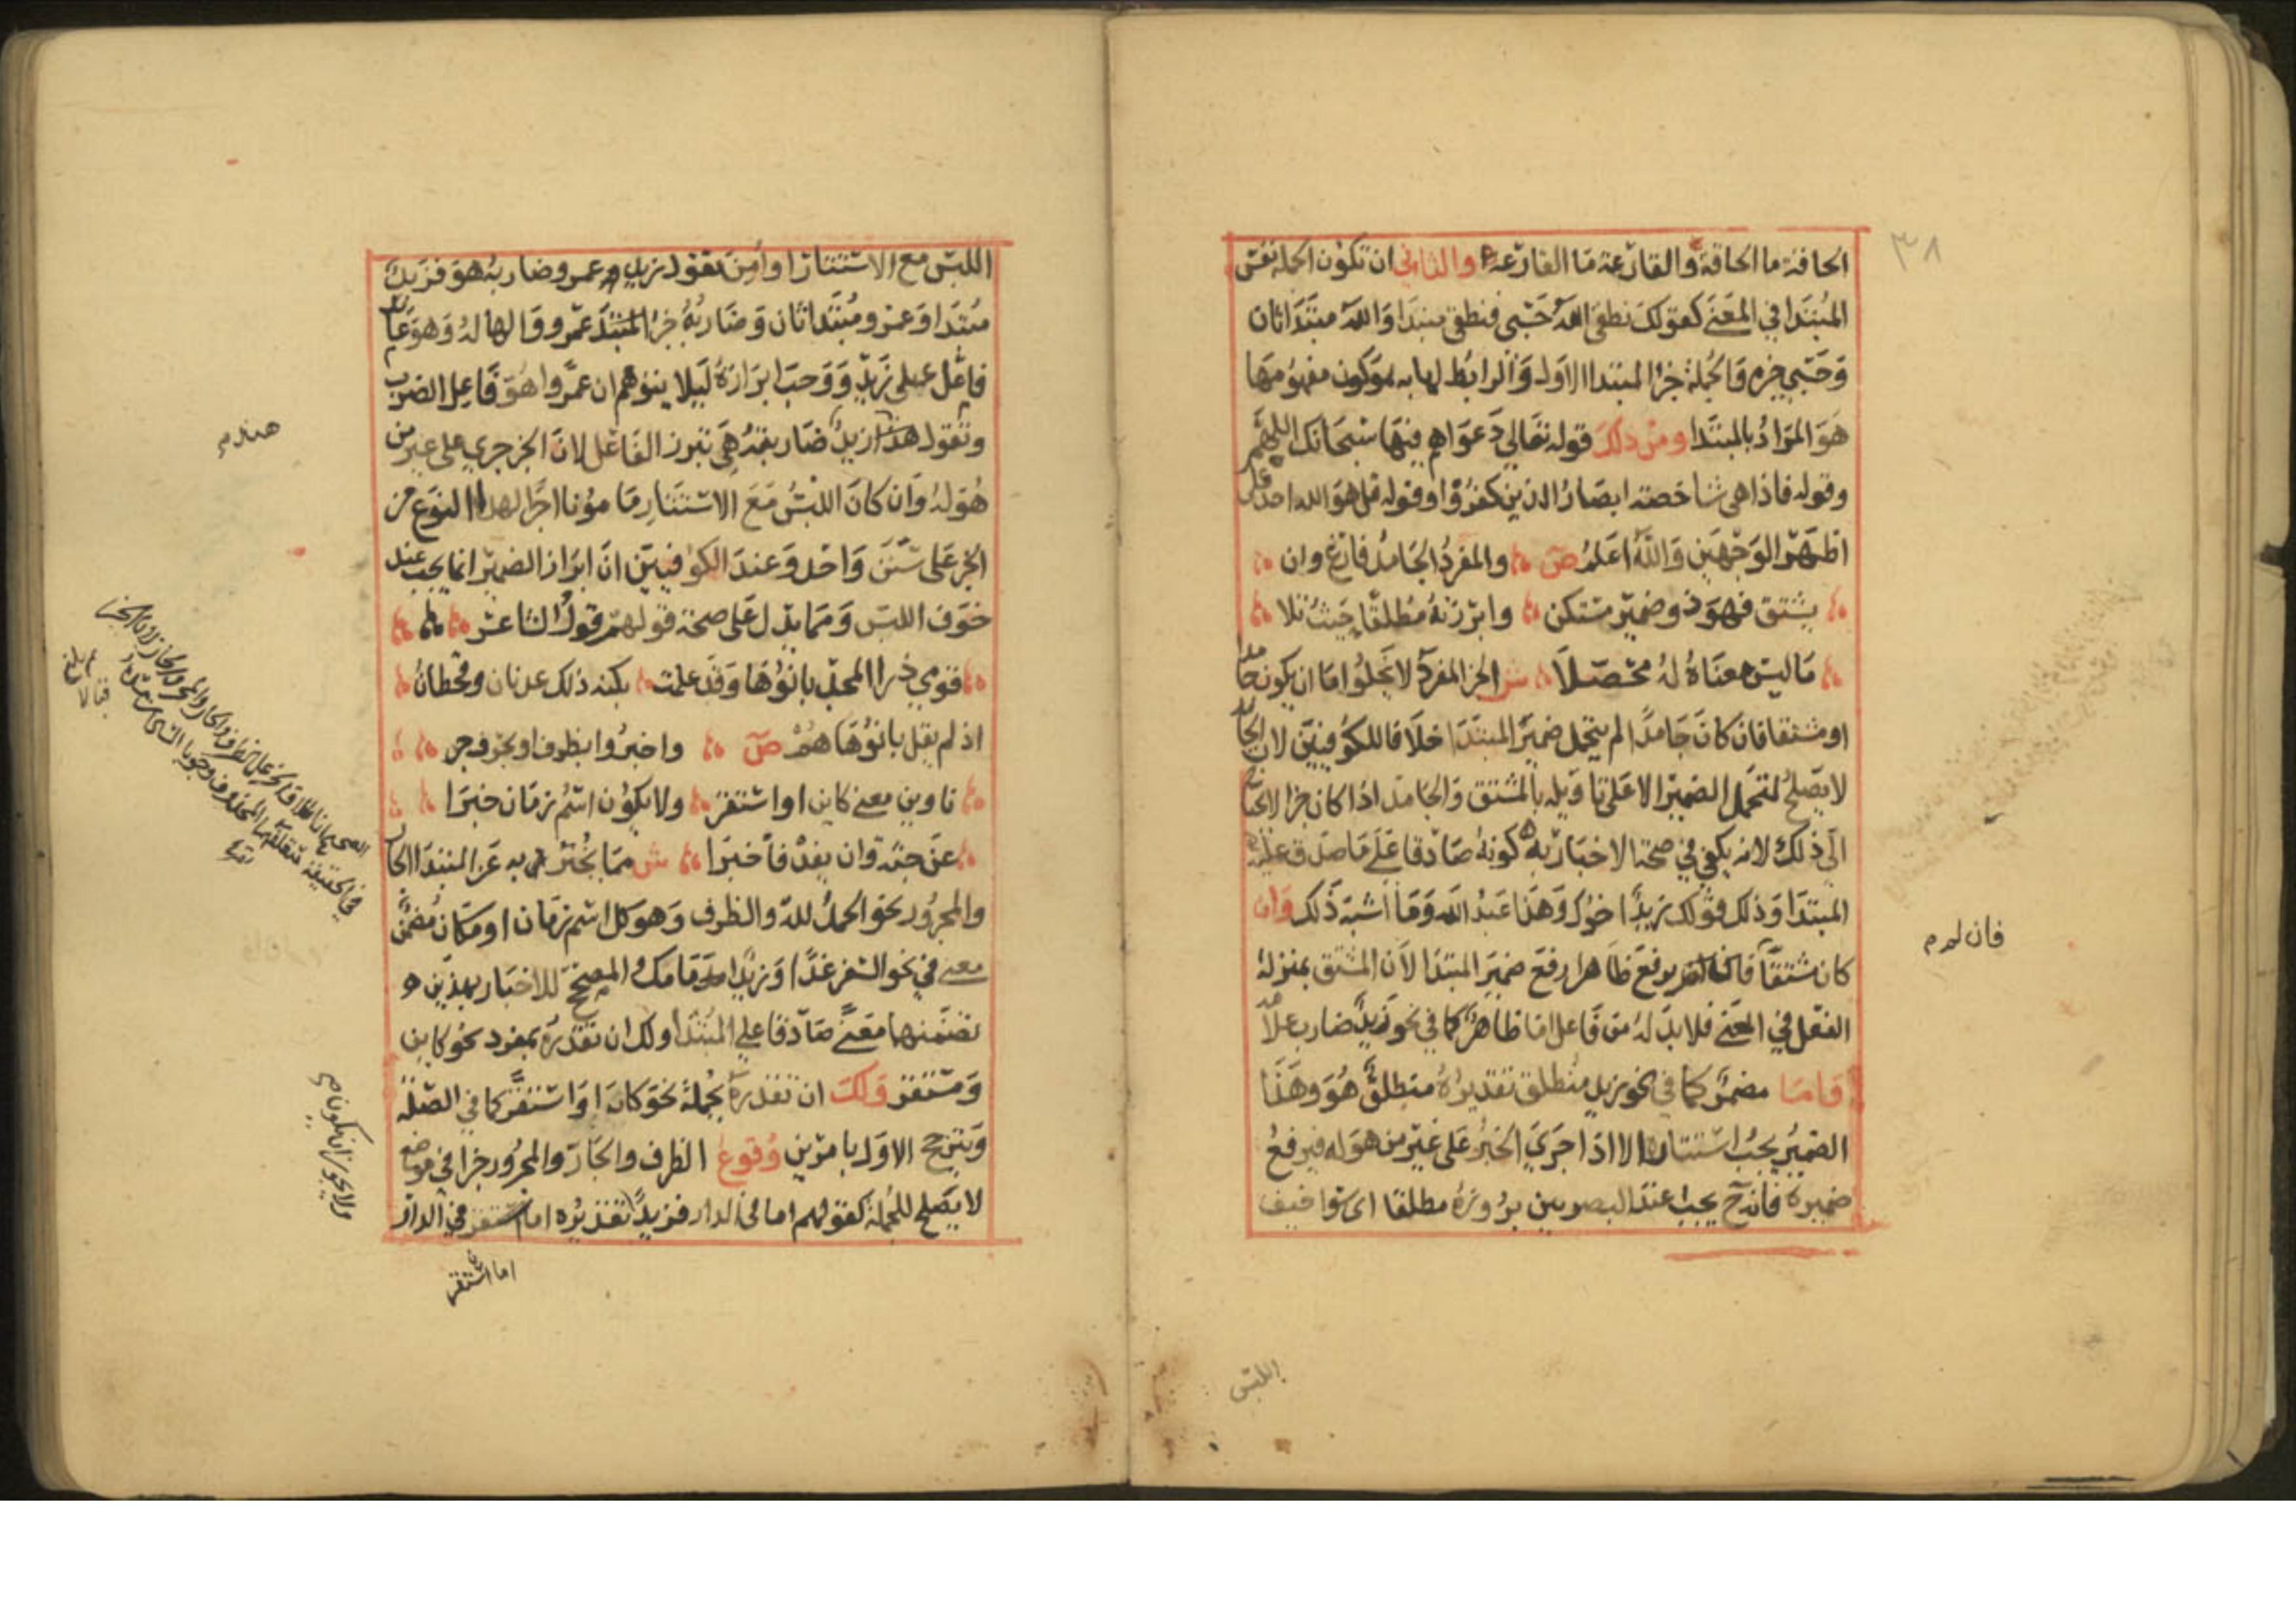 ٣٨
الحاقة ما الحاقة والقارعة ما القارعة والثاني ان تكون الجملة نفس
المبتدا في المعنى كقولك نطقى الله حسبى فنطقى مبتدا والله مبتدا ثان
وحسبي خبره والجملة خبر المبتدا الاول والرابط لها به كون مفهومها
هو المراد بالمبتدا ومن ذلك قوله تعالي دعواهم فيها سبحانك اللهم
وقوله فاذا هى شاخصة ابصار الذين كفروا وقوله قل هو الله احد على
اظهر الوجهين والله اعلم ص والمفرد الجامد فارغ وان
يشتق فهو ذو ضمير مستكن وابرزنه مطلقا حيث تلا
ما ليس معناه له محصلا ش الخبر المفرد لا يخلوا اما ان يكون جامدا
او مشتقا فان كان جامدا لم يتحمل ضمير المبتدا خلافا للكوفيين لان الجامد
لا يصلح لتحمل الضمير الا على تاويله بالمشتق والجامد اذا كان خبرا لا يحتاج
الى ذلك لانه يكفي في صحة الاخبار به كونه صادقا على ما صدق عليه
المبتدا وذلك قولك زيد اخوك وهذا عبد الله وما اشبه ذلك وان
كان مشتقا فان لم يرفع ظاهرا رفع ضمير المبتدا لان المشتق بمنزلة
الفعل في المعنى فلا بد له من فاعل اما ظاهر كما في نحو زيد ضارب غلامه
واما مضمر كما في نحو زيد منطلق تقديره منطلق هو وهذا
الضمير يجب استتاره الا اذا جرى الخبر على غير من هو له فيرفع
ضميره فانه ح يجب عند البصريين بروزه مطلقا اى سوا خيف
فان لم
اللبس
اللبس مع الاستتار او امن تقول زيد عمرو ضاربه هو فزيد
مبتدا وعمرو مبتدا ثان وضاربه خبر المبتدا عمرو والها له وهو عايد
فاعل على زيد ووجب ابرازه ليلا يتوهم ان عمروا هو فاعل الضرب
وتقول هند زيد ضاربته هى تبرز الفاعل لان الخبر جري على غير من
هو له وان كان اللبس مع الاستتار مامونا اجرا لهذا النوع من
الخبر على سنن واحد وعند الكوفيين ان ابراز الضمير انما يجب عند
خوف اللبس ومما يدل على صحة قولهم قول الشاعر
قومي ذرا المجد بانوها وقد علمت بكنه ذلك عدنان وقحطان
اذ لم يقل بانوها هم ص واخبروا بظرف او بحرف جر
ناوين معنى كاين او استقر ولا يكون اسم زمان خبرا
عن جثة وان يفد فاخبرا ش مما يخبر به عن المبتدا الجار
والمجرور نحو الحمد لله والظرف وهو كل اسم زمان او مكان مضمن
معنى في نحو السفر غدا وزيد امامك والمصحح للاخبار بهذين
تضمنهما معنى صادقا على المبتدا ولك ان تقدره بمفرد نحو كاين
ومستقر ولك ان تقدره بجملة نحو كان او استقر كما في الصلة
ويترجح الاول بامرين وقوع الظرف والجار والمجرور خبرا في موضع
لا يصلح للجملة كقولهم اما في الدار فزيد تقديره اما مستقر في الدار
هند
ولا يجوز ان يكون
اما استقر